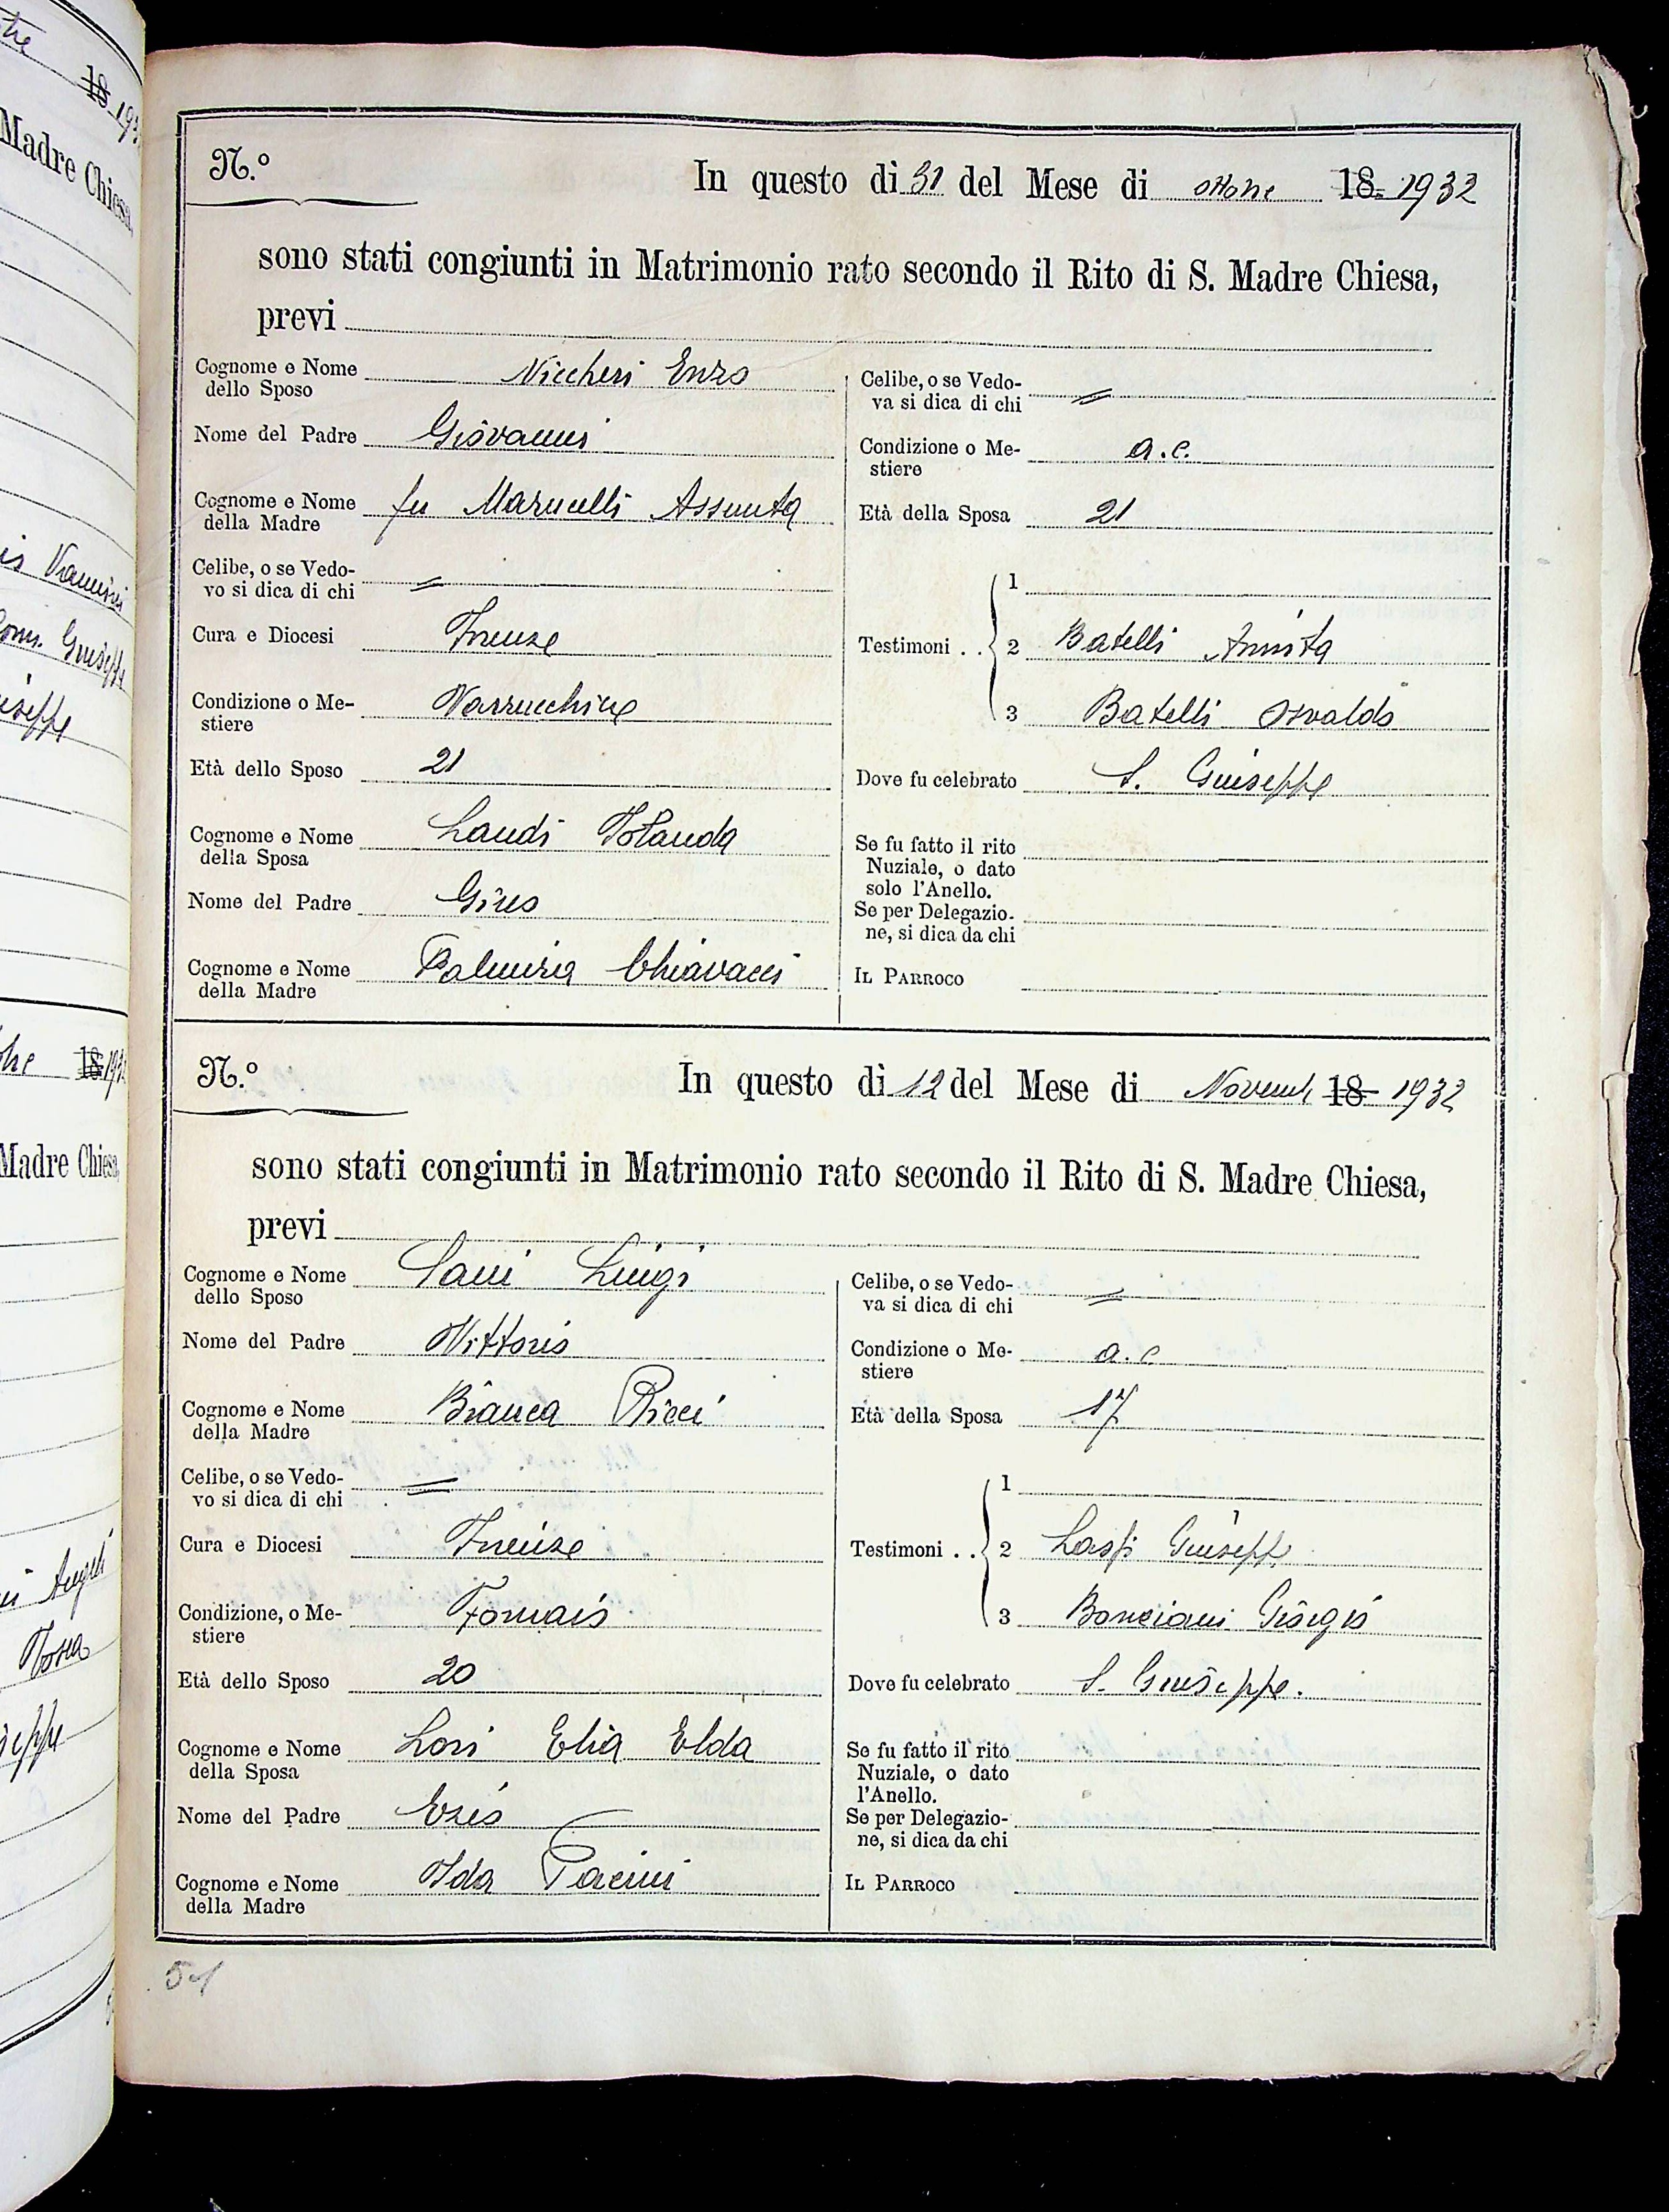 N.º
In questo dì 31 del Mese di ottobre 18 1932
sono stati congiunti in Matrimonio rato secondo il Rito di S. Madre Chiesa,
previ
Cognome e Nome
dello Sposo Niccheri Enzo
Nome del Padre Giovanni
Cognome e Nome
della Madre fu Marucelli Assunta
Celibe, o se Vedo-
vo si dica di chi =
Cura e Diocesi Firenze
Condizione o Me-
stiere Parrucchiere
Età dello Sposo 21
Cognome e Nome
della Sposa Landi Iolanda
Nome del Padre Gino
Cognome e Nome
della Madre Palmira Chiavacci
Celibe, o se Vedo-
va si dica di chi =
Condizione o Me-
stiere a.c.
Età della Sposa 21
Testimoni . .
1
2 Batelli Annita
3 Batelli Osvaldo
Dove fu celebrato S. Giuseppe
Se fu fatto il rito
Nuziale, o dato
solo l'Anello.
Se per Delegazio-
ne, si dica da chi
IL PARROCO
N.º
In questo dì 12 del Mese di Novemb 18 1932
sono stati congiunti in Matrimonio rato secondo il Rito di S. Madre Chiesa,
previ
Cognome e Nome
dello Sposo Sani Luigi
Nome del Padre Vittorio
Cognome e Nome
della Madre Bianca Ricci
Celibe, o se Vedo-
vo si dica di chi =
Cura e Diocesi Firenze
Condizione, o Me-
stiere Fornaio
Età dello Sposo 20
Cognome e Nome
della Sposa Lori Elia Elda
Nome del Padre Ezio
Cognome e Nome
della Madre Ida Pacini
Celibe, o se Vedo-
va si dica di chi =
Condizione o Me-
stiere a.c.
Età della Sposa 17
Testimoni . .
1
2 Giusepp
3 Bonciani Giorgio
Dove fu celebrato S. Giuseppe.
Se fu fatto il rito
Nuziale, o dato
l'Anello.
Se per Delegazio-
ne, si dica da chi
IL PARROCO
51